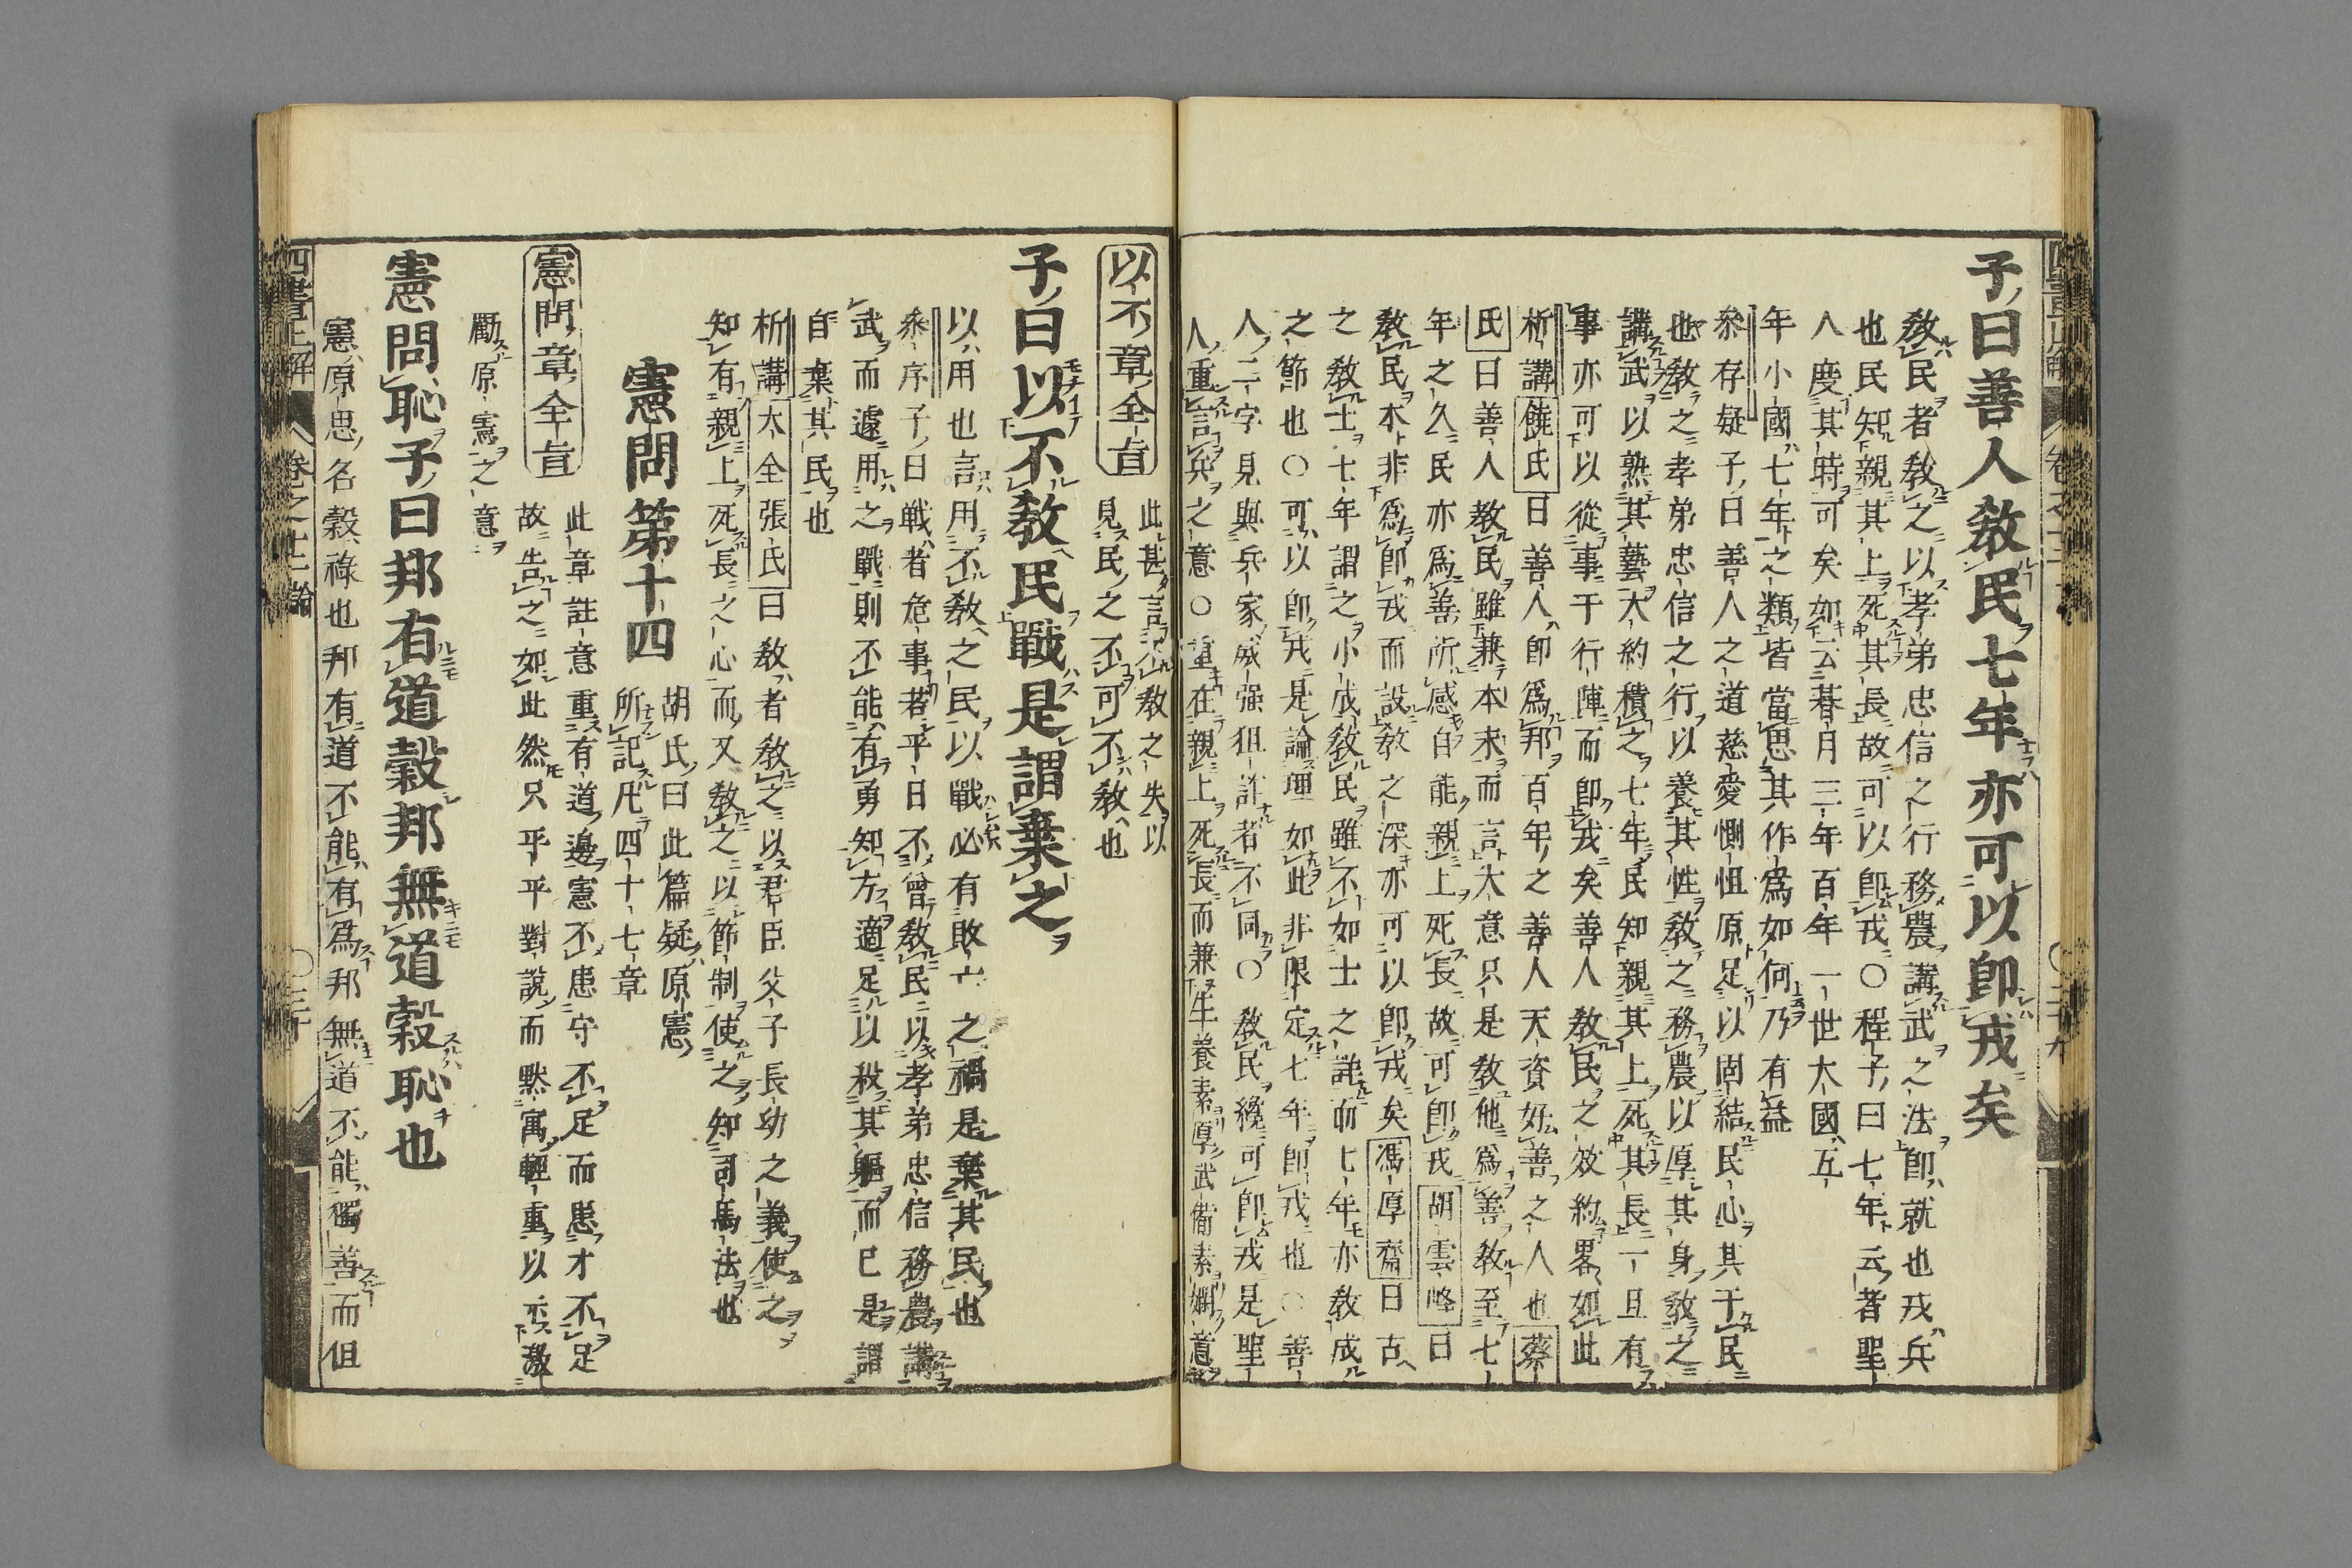 子曰善人教民七年亦可以卽戎矣
教民者教之以孝弟忠信之行務農講武之法卽就也戎兵
也民知親其上死其長故可以卽戎○程子曰七年云者聖
人度其時可矣如云朞月三年百年一世大國五
年小國七年之類皆當思其作爲如何乃有益
叅存疑子曰善人之道慈愛惻怛原足以固結民心其于民
也教之孝弟忠信之行以養其性教之務農以厚其身教之
講武以熟其藝大約積之七年民知親其上死其長一旦有
事亦可以從事于行陣而卽戎矣善人教民之效約畧如此
析講饒氏曰善人卽爲邦百年之善人天資好善之人也蔡
氏曰善人教民雖兼本末而言大意只是教他爲善教至七
年之久民亦爲善所感自能親上死長故可卽戎胡雲峰曰
教民本非爲卽戎而設教之深亦可以卽戎矣馮厚齋曰古
之教士七年謂之小成教民雖不如士之詳而七年亦教成
之節也○可以卽戎是論理如此非限定七年卽戎也○善
人二字見與兵家威强狙詐者不同○教民纔可卽戎是聖
人重言兵之意○重在親上死長而兼生養素厚武備素嫻意
四書正解
卷之十二
○二十九
以不章全旨
此甚言不教之失以
見民之不可不教也
子曰以不教民戰是謂棄之
以用也言用不教之民以戰必有敗亡之禍是棄其民也
叅序子曰戰者危事若平日不曾教民以孝弟忠信務農講
武而遽用之戰則不能有勇知方適足以殺其軀而已是謂
自棄其民也
析講大全張氏曰教者教之以君臣父子長幼之義使之
知有親上死長之心而又教之以節制使之知司馬法也
憲問第十四
胡氏曰此篇疑原憲
所記凡四十七章
憲問章全旨
此章註意重有道邊憲不患守不足而患才不足
故告之如此然只平平對說而默寓輕重以示激
勵原憲之意
憲問恥子曰邦有道穀邦無道穀恥也
憲原思名穀祿也邦有道不能有爲邦無道不能獨善而但
四書正解
卷之十二論
○三十